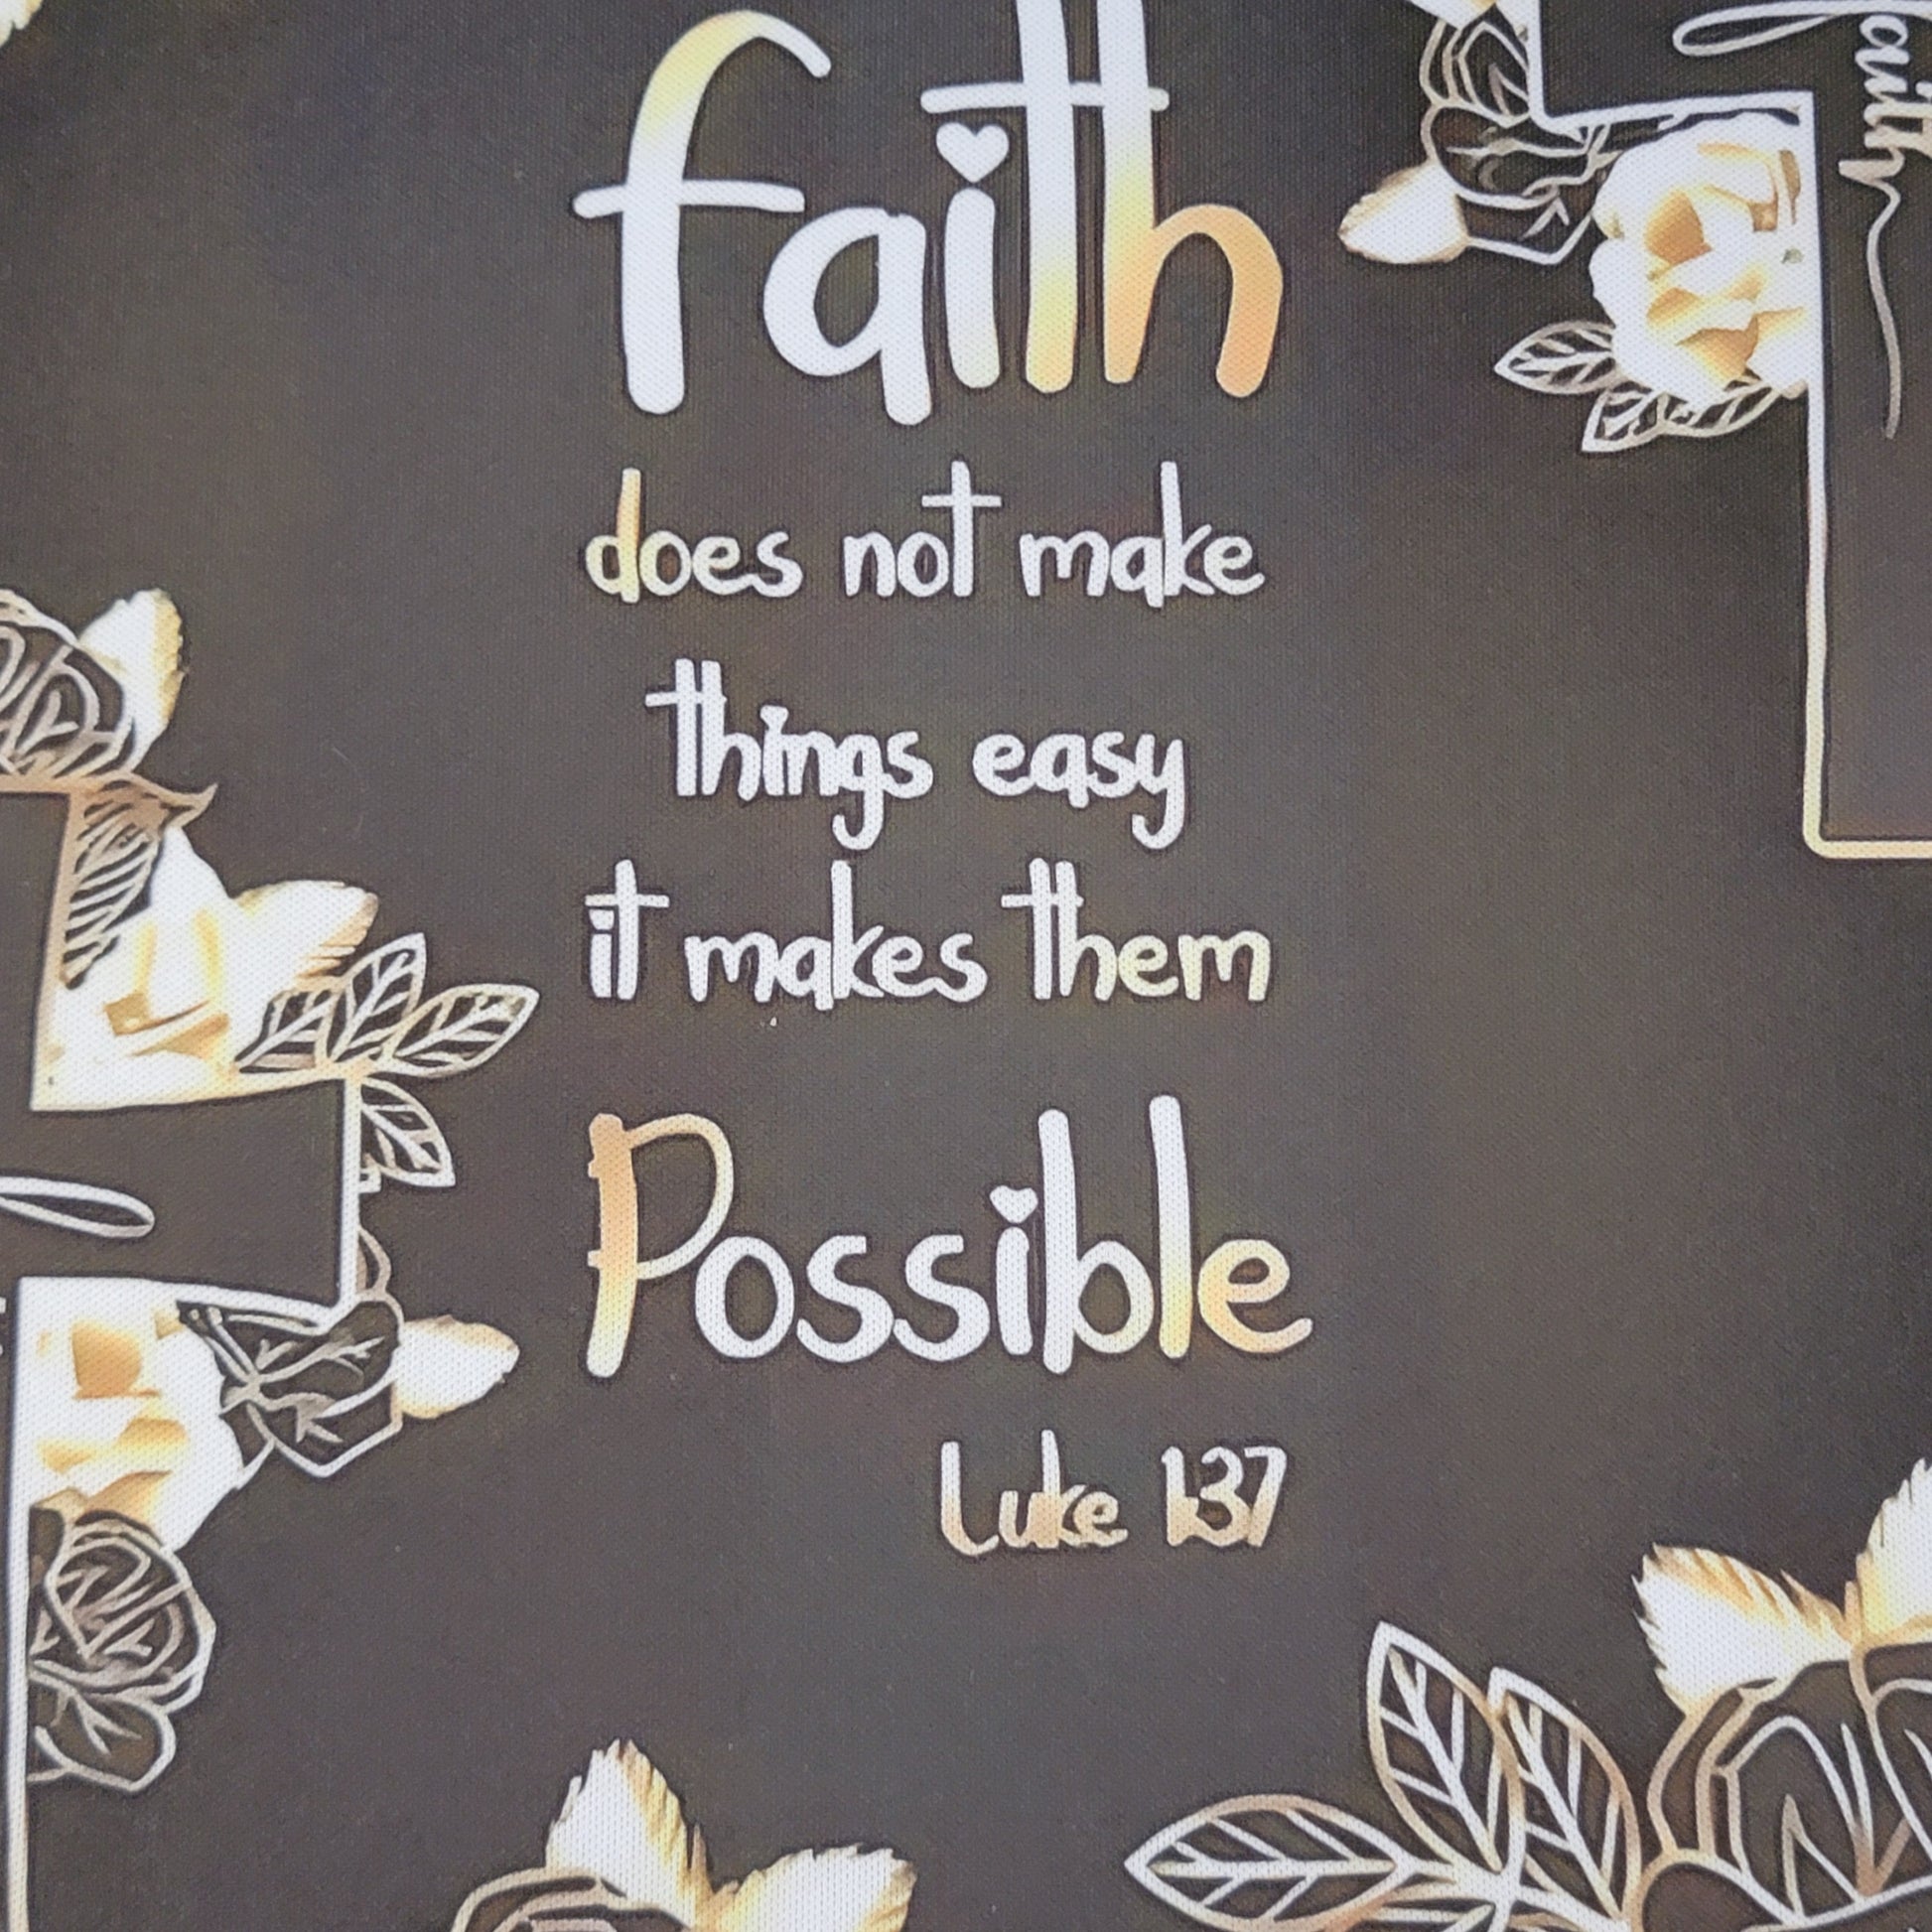 faith
does not make
things easy
it makes them
Possible
Luke 1:37
faith